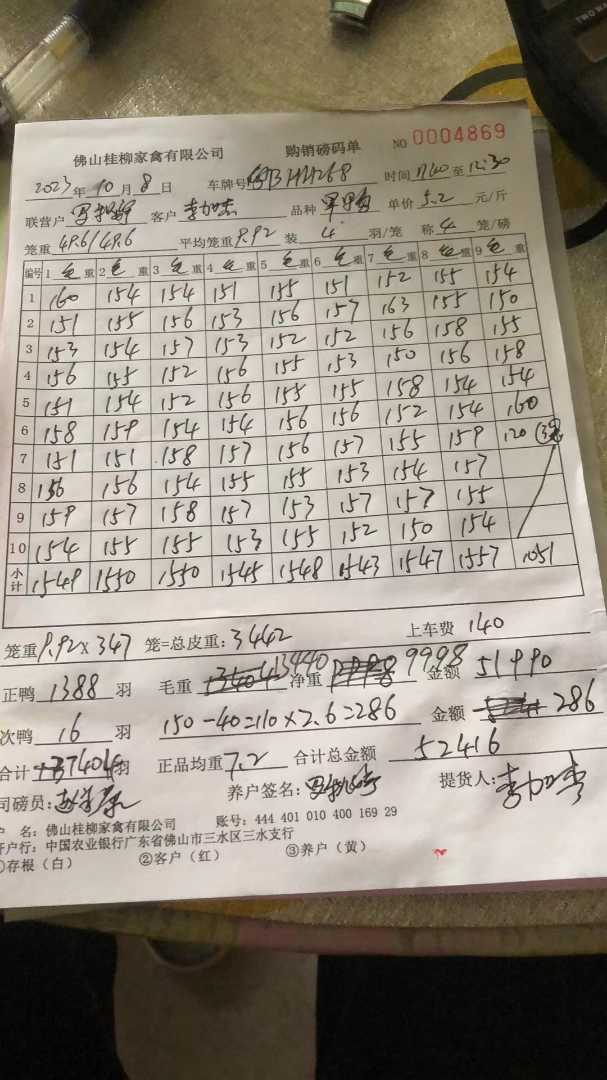 TWO WA
佛山桂柳家禽有限公司 购销磅码单 NO 0004869
2023年10月8日 车牌号 H4268 时间 11:40 至 12:30
联营户 客户 李加 品种 单价 5.2 元/斤
笼重 49.6/49.6 平均笼重 9.92 装 4 羽/笼 称 4 笼/磅
编号 1 重 2 重 3 重 4 重 5 重 6 重 7 重 8 重 9 重
1 160 154 154 151 155 151 152 155 154
2 151 155 156 153 156 157 163 155 150
3 153 154 157 153 152 152 156 158 155
4 156 155 152 156 155 153 150 156 158
5 151 154 152 156 155 155 158 154 154
6 158 159 154 154 156 156 152 154 160
7 151 151 158 157 156 157 155 159 120 (3笼)
8 156 156 154 155 155 153 154 157
9 159 157 158 157 153 157 157 155
10 154 155 155 153 155 152 150 154
小计 1549 1550 1550 1545 1548 1543 1547 1557 1051
笼重 9.92×347 笼=总皮重: 3442 上车费 140
正鸭 1388 羽 毛重 13440 净重 9998 金额 51990
次鸭 16 羽 150-40=110×2.6=286 金额 286
合计 1404 羽 正品均重 7.2 合计总金额 52416
司磅员: 养户签名: 提货人: 李加
户 名: 佛山桂柳家禽有限公司 账号: 444 401 010 400 169 29
开户行: 中国农业银行广东省佛山市三水区三水支行
①存根（白） ②客户（红） ③养户（黄）